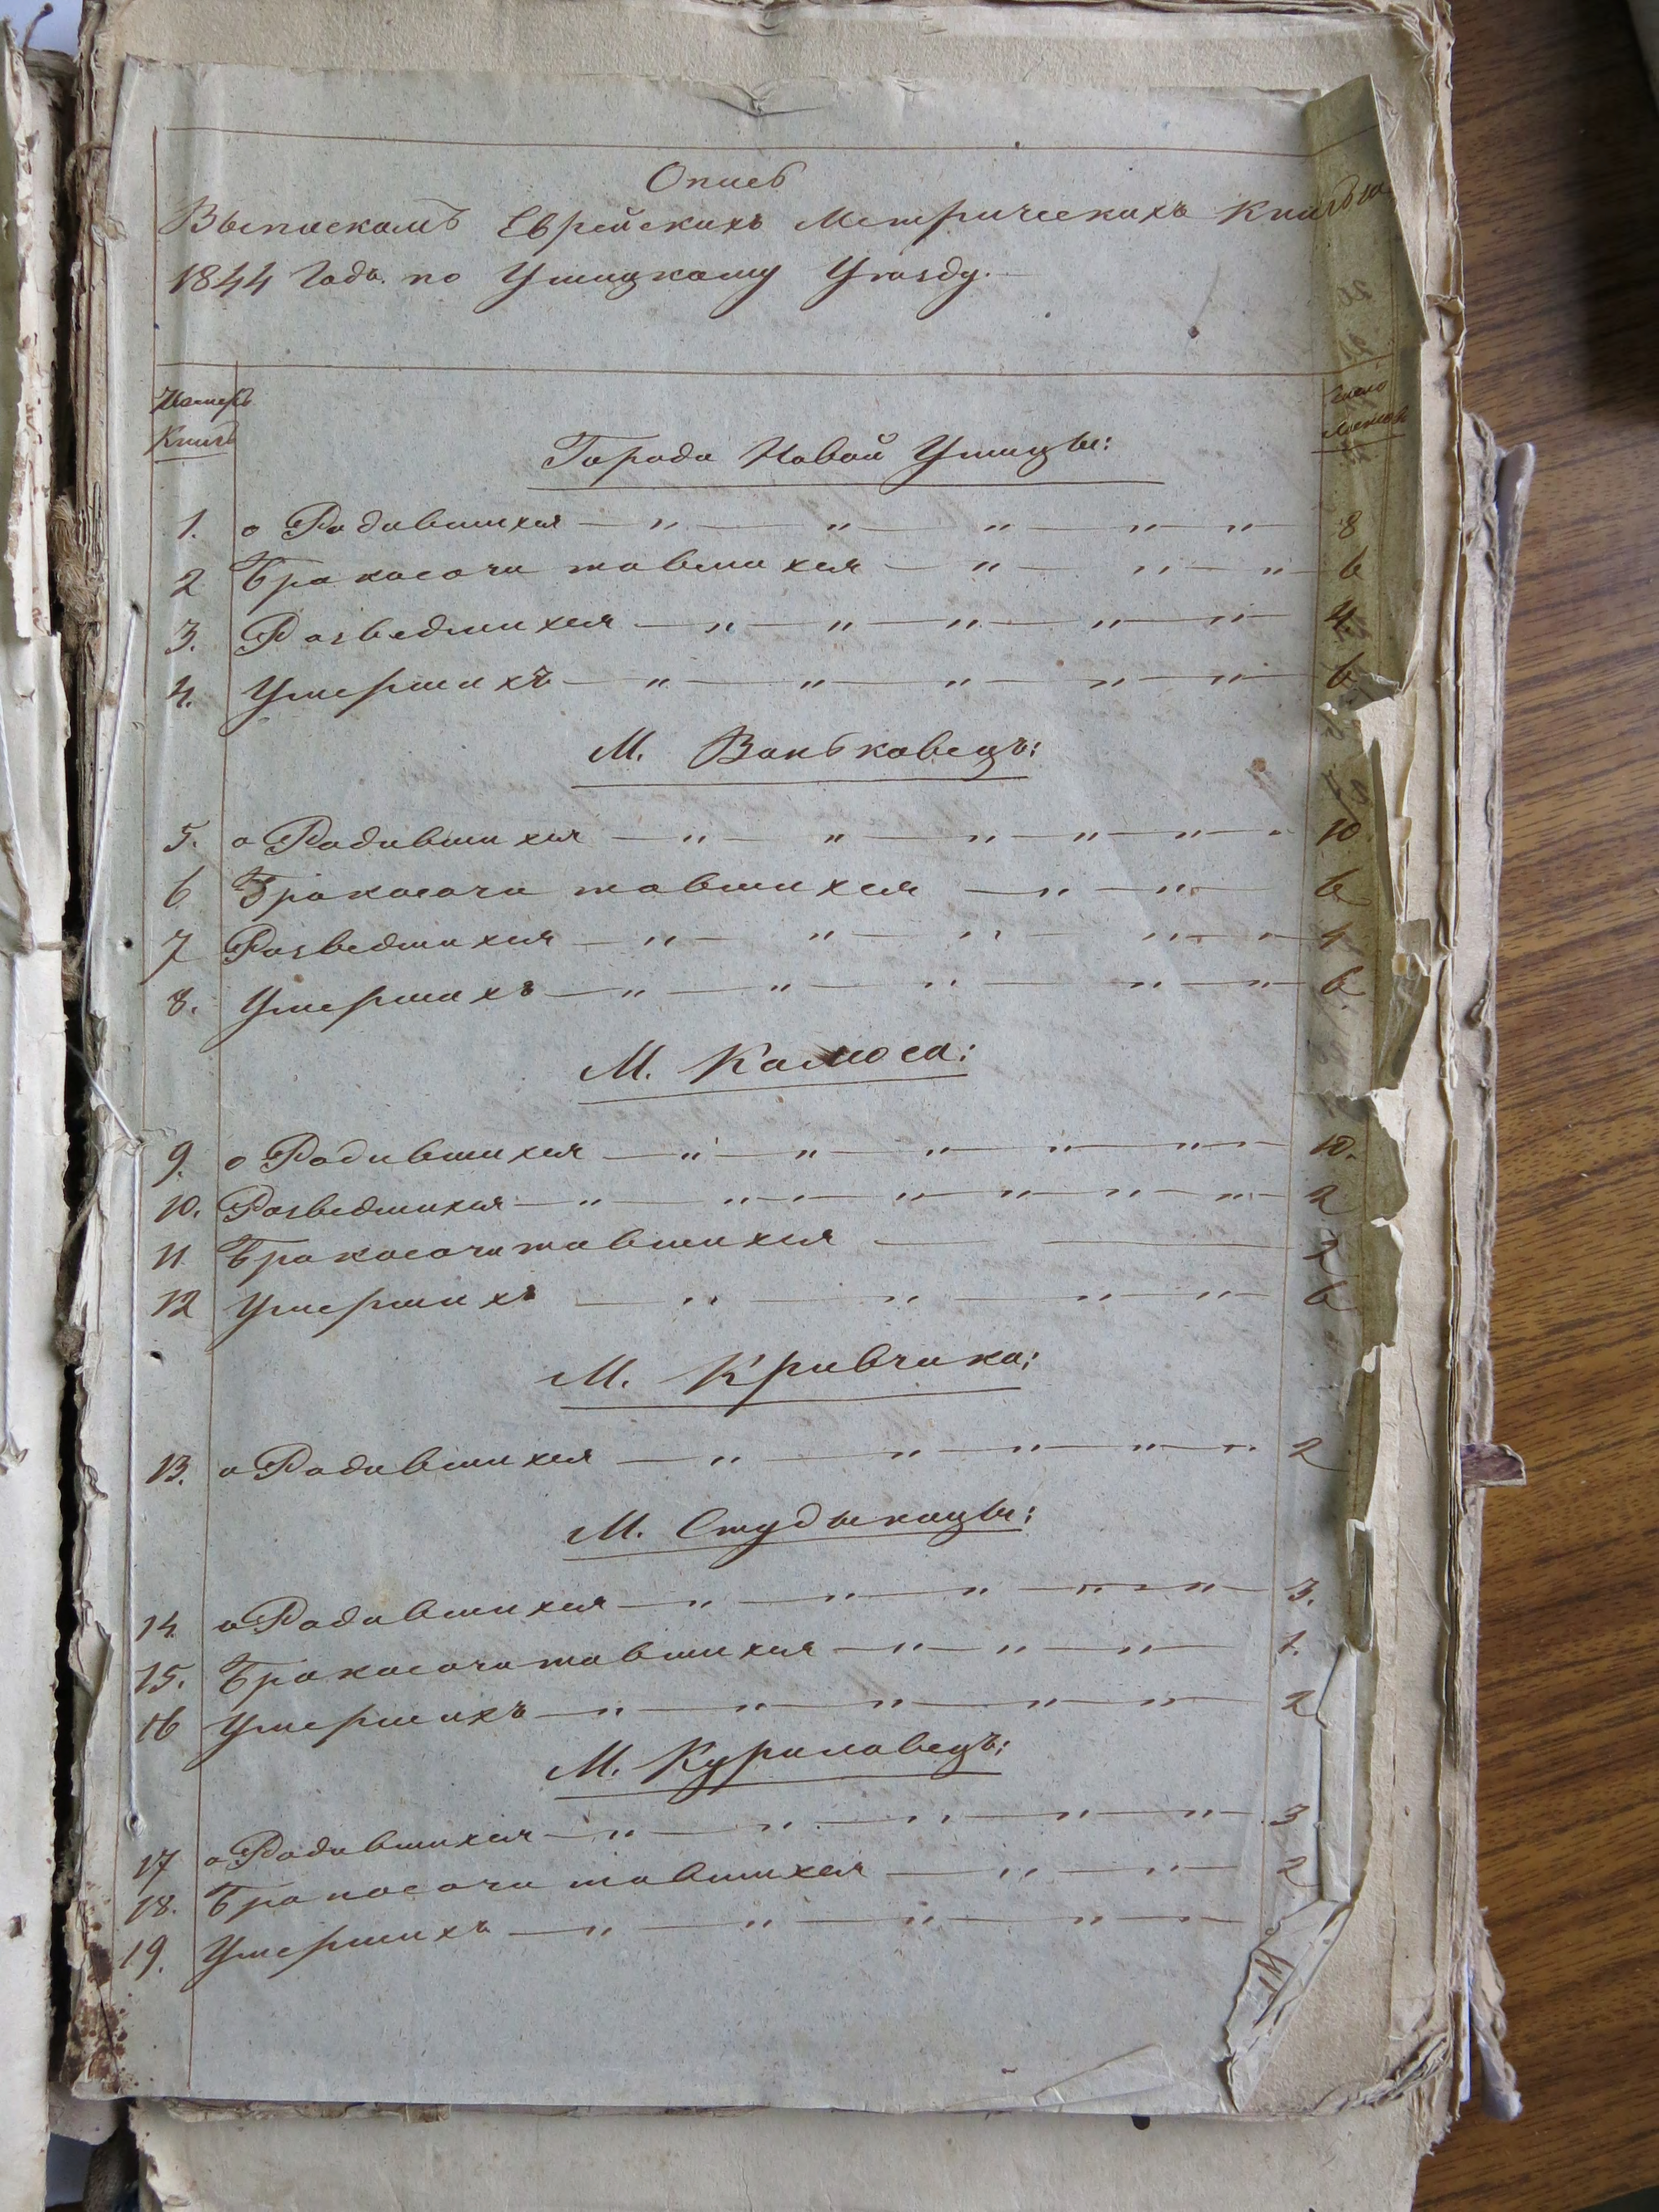 Опись
Выпискамъ Еврейскихъ Метрическихъ Книгъ за
1844 Годъ по Ушицкому Уѣзду.
Номеръ Книгъ
Число Листовъ
Города Новой Ушицы:
1. о Родившихся — " — " — " — " — " — 8
2 Бракосочитавшихся — " — " — " — 6
3. Розведшихся — " — " — " — " — " — 4.
4. Умершихъ — " — " — " — " — " — 6
М. Воньковецъ:
5. о Родившихся — " — " — " — " — " — 10
6 Бракосочитавшихся — " — " — 6
7 Розведшихся — " — " — " — " — 4
8. Умершихъ — " — " — " — " — " — 6.
М. Калюса:
9. о Родившихся — " — " — " — " — " — 10.
10. Розведшихся — " — " — " — " — " — " — 2
11 Бракосочитавшихся — — 2
12 Умершихъ — " — " — " — " — 6
М. Кривчика:
13. о Родившихся — " — " — " — " — " 2
М. Студыницы:
14. о Родившихся — " — " — " — " — " — 3.
15. Бракосочитавшихся — " — " — " — 1.
16 Умершихъ — " — " — " — " — " — 2
М. Куриловецъ:
17 о Родившихся — " — " — " — " — " — 3
18. Бракосочитавшихся — " — " — 2
19. Умершихъ — " — " — " — " — " —